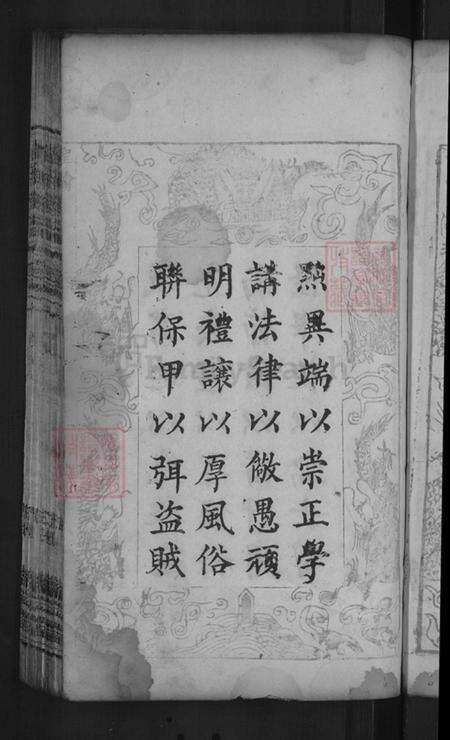 黜異端以崇正學
講法律以儆愚頑
明禮讓以厚風俗
聯保甲以弭盜賊